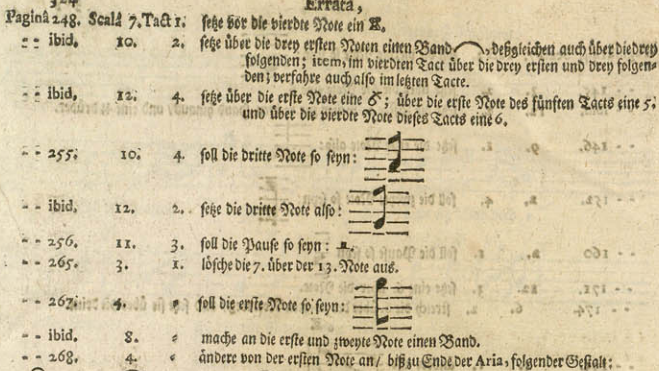 Errata,
Paginâ 248. Scalâ 7. Tact 1. setze vor die vierdte Note ein
- - ibid. 10. 2. setze über die drey ersten Noten einen Band , deßgleichen auch über die drey
folgenden; item, im vierdten Tact über die drey ersten und drey folgen-
den; verfahre auch also im letzten Tacte.
- - ibid. 12. 4. setze über die erste Note eine 6; über die erste Note des fünften Tacts eine 5.
und über die vierdte Note dieses Tacts eine 6.
- - 255. 10. 4. soll die dritte Note so seyn:
- - ibid. 12. 2. setze die dritte Note also:
- - 256. 11. 3. soll die Pause so seyn:
- - 265. 3. 1. lösche die 7. über der 13. Note aus.
- - 267. 4. - soll die erste Note so seyn:
- - ibid. 8. - mache an die erste und zweyte Note einen Band.
- - 268. 4. - ändere von der ersten Note an/ biß zu Ende der Aria, folgender Gestalt: